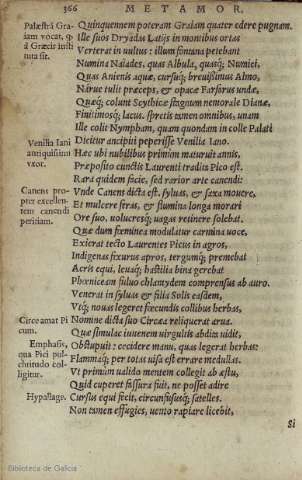 366
METAMOR.
Palæstrã Gra-
iam vocat, q̃
à Græcis insti
tuta sit.
Quinquennem poteram Graiam quater edere pugnam.
Ille suos Dryadas Latijs in montibus ortas
Verterat in vultus: illum fontana petebant
Numina Naiades, quas Albula, quasq́; Numici,
Quas Anienis aquæ, cursuq́; breuissimus Almo,
Nárue tulit præceps, & opacæ Farfarus vndæ,
Quæq́; colunt Scythicæ stagnum nemorale Dianæ,
Finitimosq́; lacus, spretis tamen omnibus, vnam
Ille colit Nympham, quam quondam in colle Palati
Dicitur ancipiti peperisse Venilia Iano.
Venilia Iani
antiquissimi
vxor.
Hæc vbi nubilibus primùm maturuit annis,
Præposito cunctis Laurenti tradita Pico est.
Rara quidem facie, sed rarior arte canendi:
Canens pro-
pter excellen-
tem canendi
peritiam.
Vnde Canens dicta est. syluas, & saxa mouere,
Et mulcere feras, & flumina longa morari
Ore suo, volucresq́; vagas retinere solebat.
Quæ dum fœminea modulatur carmina voce,
Exierat tecto Laurentes Picus in agros,
Indigenas fixurus apros, tergumq́; premebat
Acris equi, leuaq́; hastilia bina gerebat
Phœniceam fuluo chlamydem comprensus ab auro.
Venerat in syluas & filia Solis easdem,
Vtq́; nouas legeret fœcundis collibus herbas,
Circe amat Pi
cum.
Nomine dicta suo Circæa reliquerat arua.
Quæ simulac iuuenem virgultis abdita vidit,
Emphasis,
qua Pici pul-
chritudo col-
ligitur.
Obstupuit: cecidere manu, quas legerat herbæ:
Flammaq́; per totas visa est errare medullas.
Vt primùm valido mentem collegit ab æstu,
Quid cuperet fassura fuit, ne posset adire
Hypallage.
Cursus equi fecit, circunfususq́; satelles.
Non tamen effugies, vento rapiare licebit,
Si
Biblioteca de Galicia